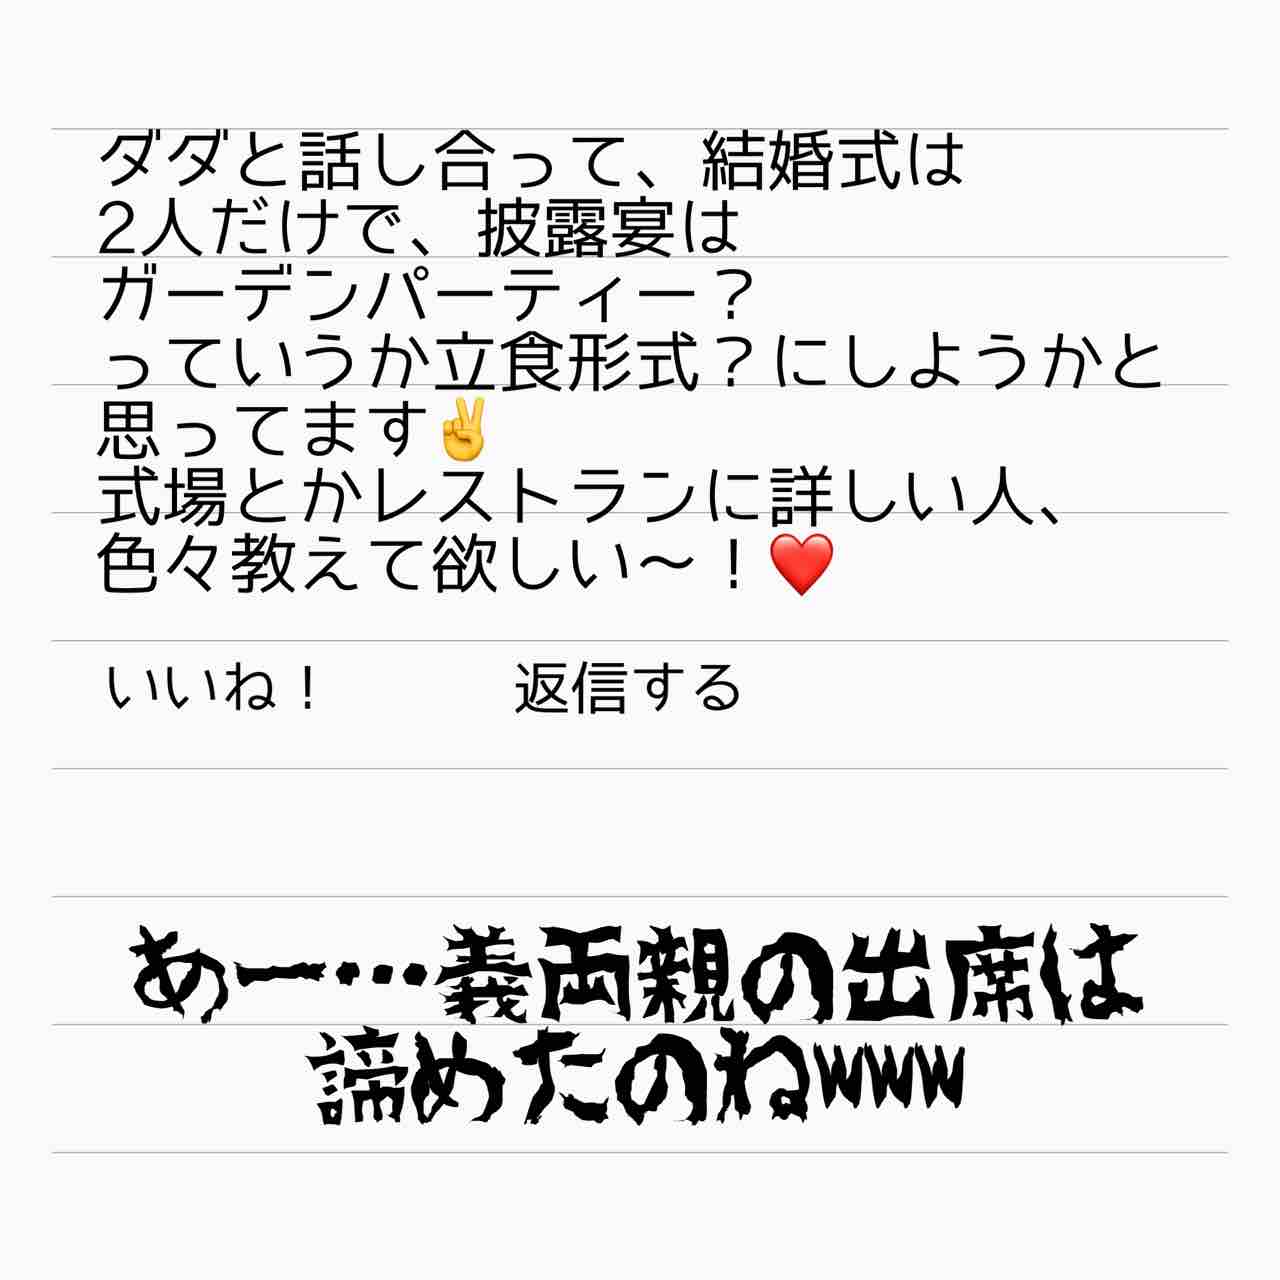 ダダと話し合って、結婚式は
2人だけで、披露宴は
ガーデンパーティー？
っていうか立食形式？にしようかと
思ってます✌️
式場とかレストランに詳しい人、
色々教えて欲しい〜！❤️
いいね！ 返信する
あー…義両親の出席は
諦めたのねwww